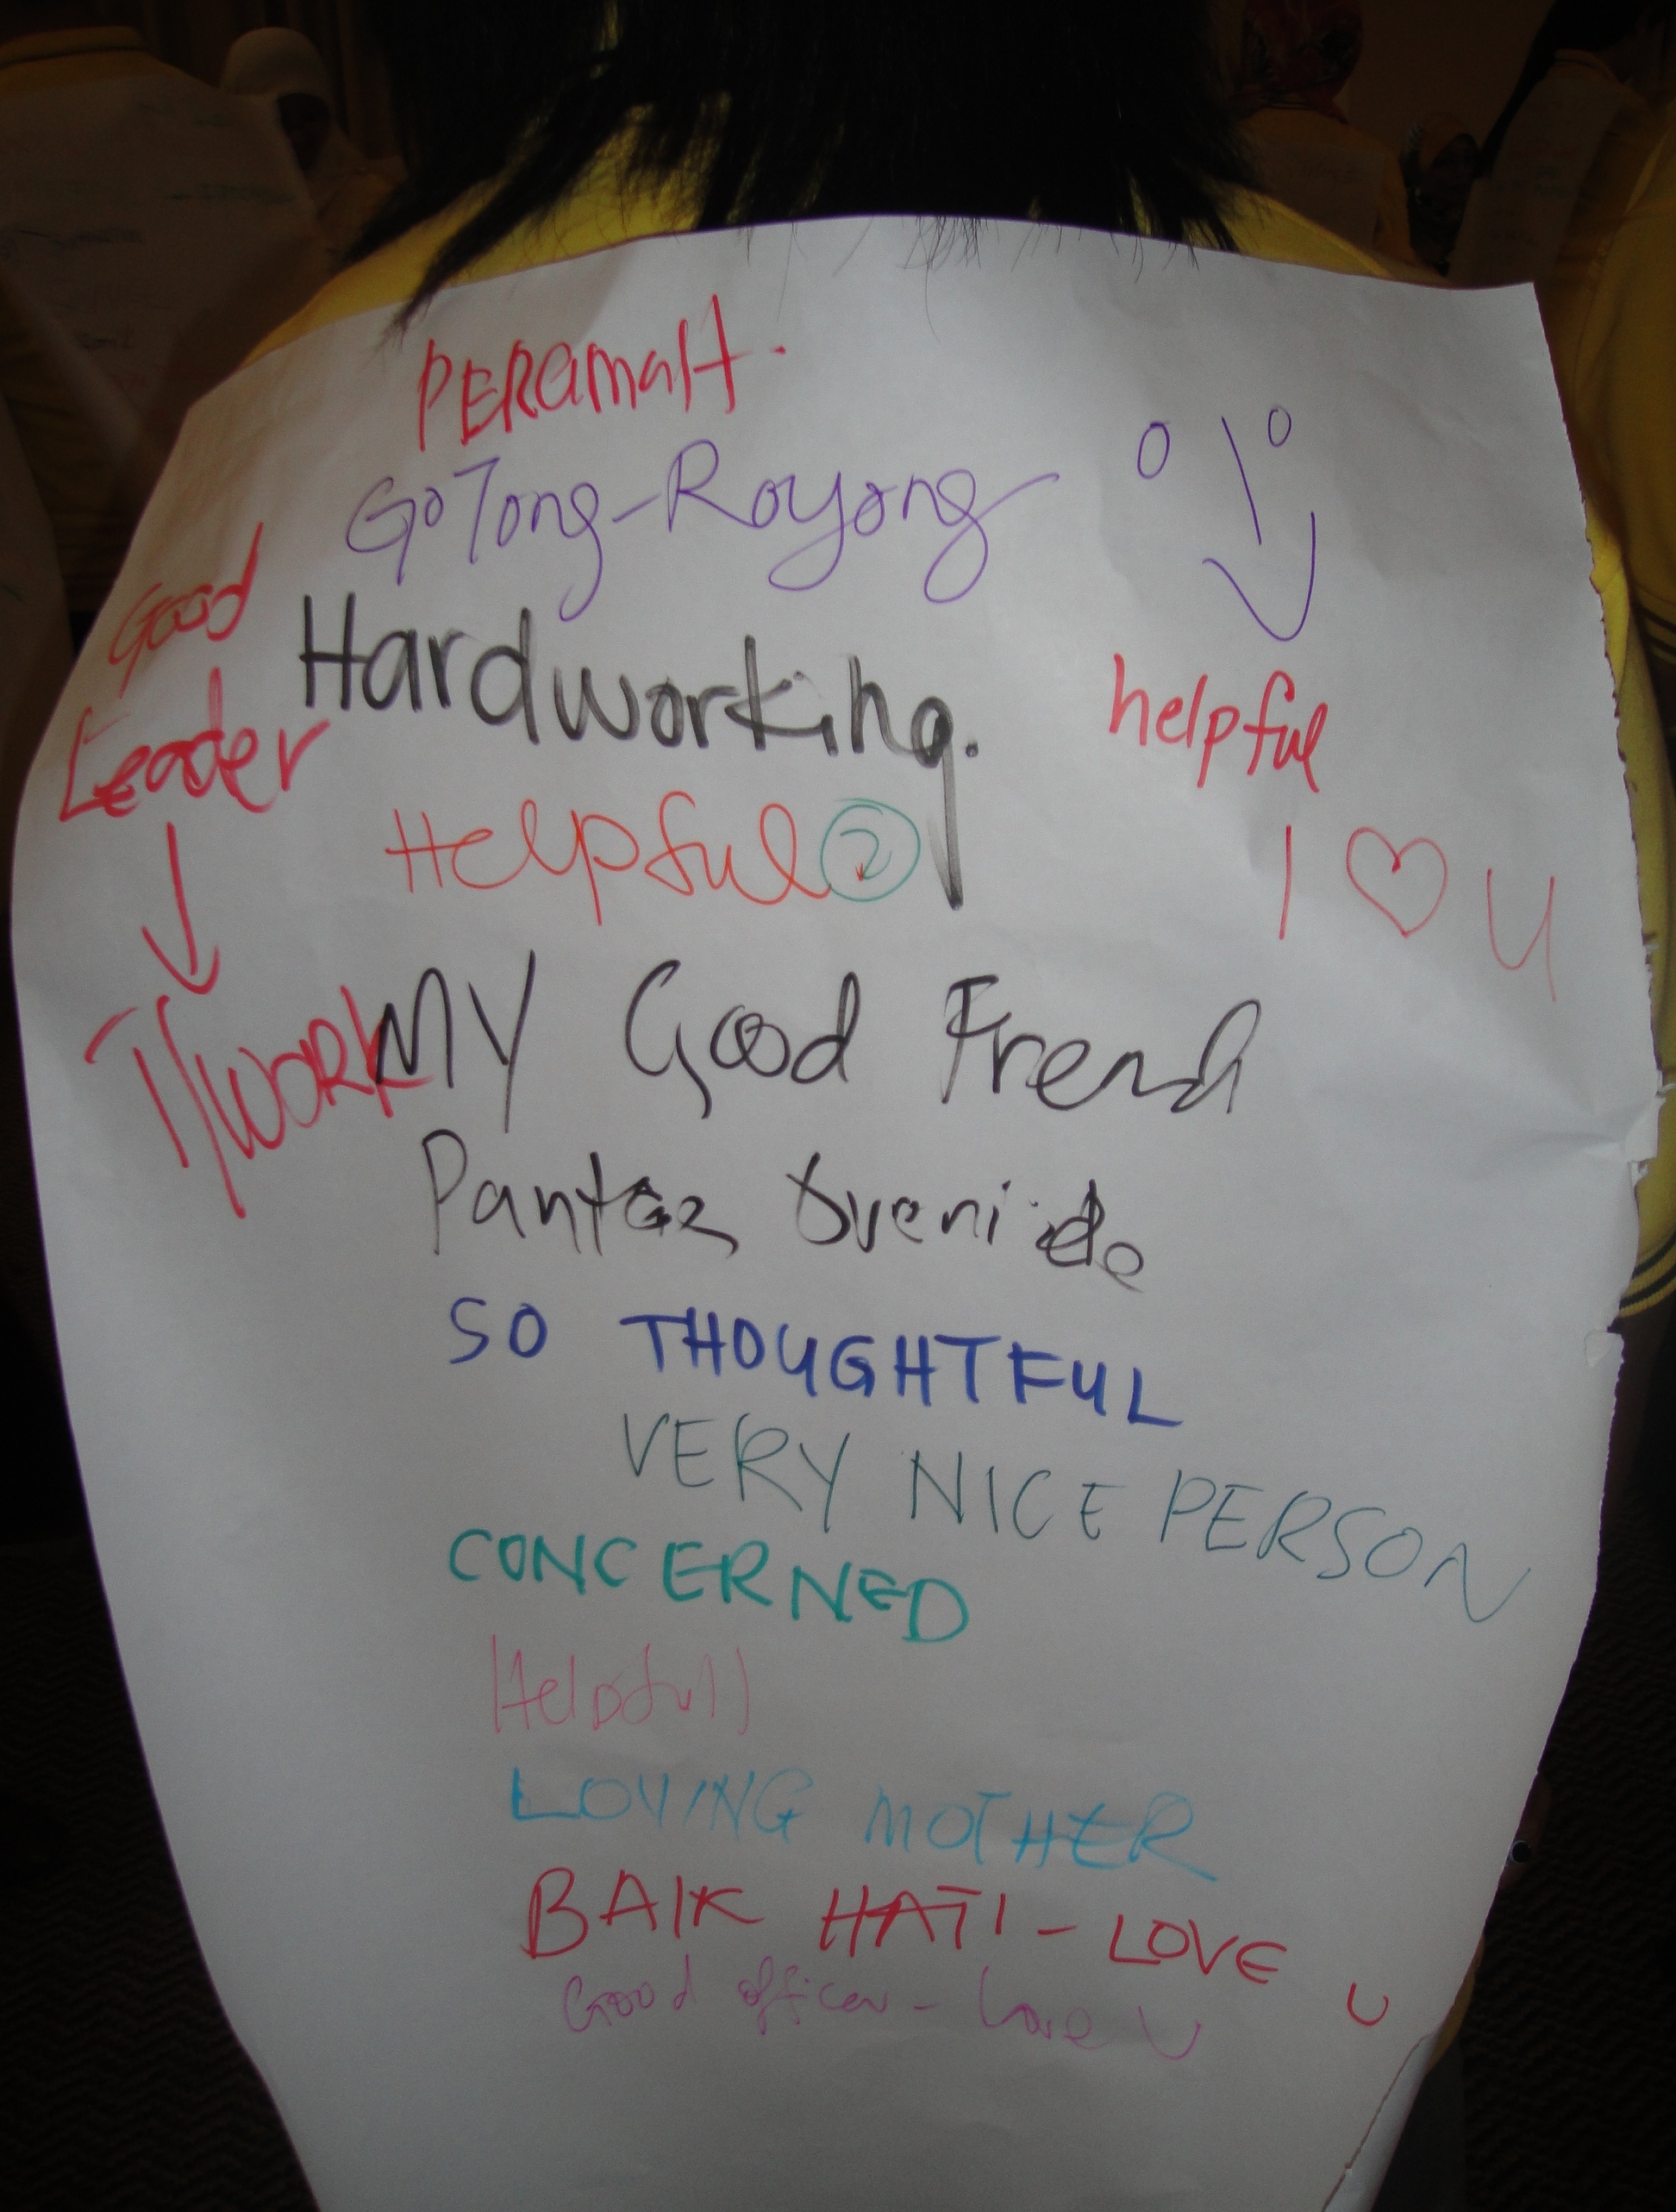 PERamaH.
GoTong-Royong
Good
Leader
T/work
Hardworking.
helpful
Helpful 2
I ♡ U
MY Good Frend
SO THOUGHTFUL
VERY NICE PERSON
CONCERNED
Helpful
LOVING MOTHER
BAIK HATI - LOVE U
Good officer - Love U